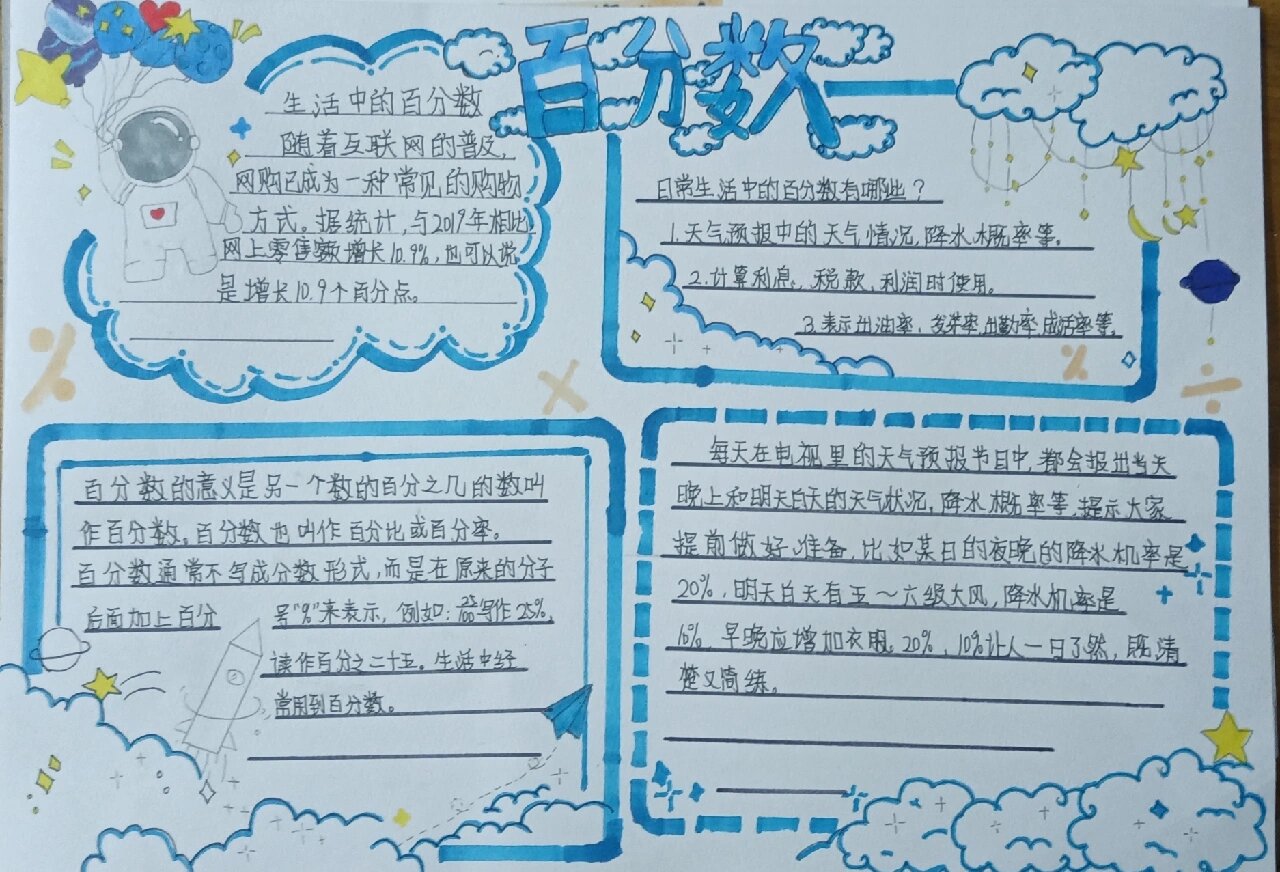 百分数
生活中的百分数
随着互联网的普及,
网购已成为一种常见的购物
方式。据统计,与2019年相比,
网上零售额增长10.9%,也可以说
是增长10.9个百分点。
日常生活中的百分数有哪些?
1.天气预报中的天气情况,降水概率等。
2.计算利息、税款,利润时使用。
3.表示出油率,发芽率,出勤率,成活率等。
百分数的意义是另一个数的百分之几的数叫
作百分数。百分数也叫作百分比或百分率。
百分数通常不写成分数形式,而是在原来的分子
后面加上百分 号"%"来表示,例如:25/100写作25%,
读作百分之二十五。生活中经
常用到百分数。
每天在电视里的天气预报节目中,都会报出当天
晚上和明天白天的天气状况,降水概率等,提示大家
提前做好准备,比如某日的夜晚的降水机率是
20%,明天白天有五~六级大风,降水机率是
10%,早晚应增加衣服。20%,10%让人一日了然,既清
楚又简练。